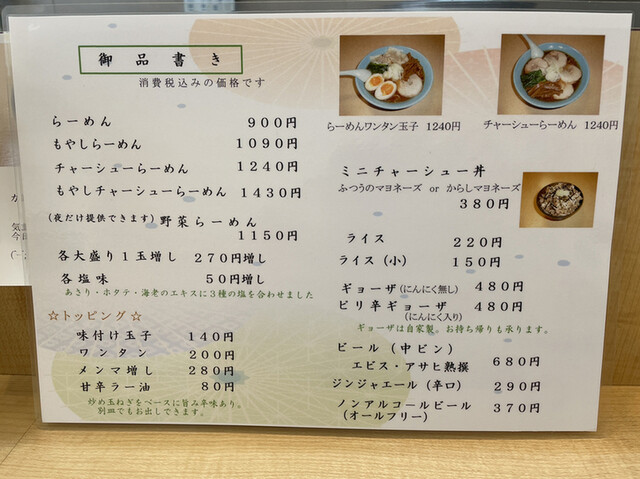 御品書き
消費税込みの価格です
らーめん 900円
もやしらーめん 1090円
チャーシューらーめん 1240円
もやしチャーシューらーめん 1430円
(夜だけ提供できます) 野菜らーめん
1150円
各大盛り1玉増し 270円増し
各塩味 50円増し
あさり・ホタテ・海老のエキスに3種の塩を合わせました
☆トッピング☆
味付け玉子 140円
ワンタン 200円
メンマ増し 280円
甘辛ラー油 80円
炒め玉ねぎをベースに旨み辛味あり。
別皿でもお出しできます。
らーめんワンタン玉子 1240円
チャーシューらーめん 1240円
ミニチャーシュー丼
ふつうのマヨネーズ or からしマヨネーズ
380円
ライス 220円
ライス (小) 150円
ギョーザ (にんにく無し) 480円
ピリ辛ギョーザ 480円
(にんにく入り)
ギョーザは自家製。お持ち帰りも承ります。
ビール (中ビン)
エビス・アサヒ熟撰 680円
ジンジャエール (辛口) 290円
ノンアルコールビール 370円
(オールフリー)